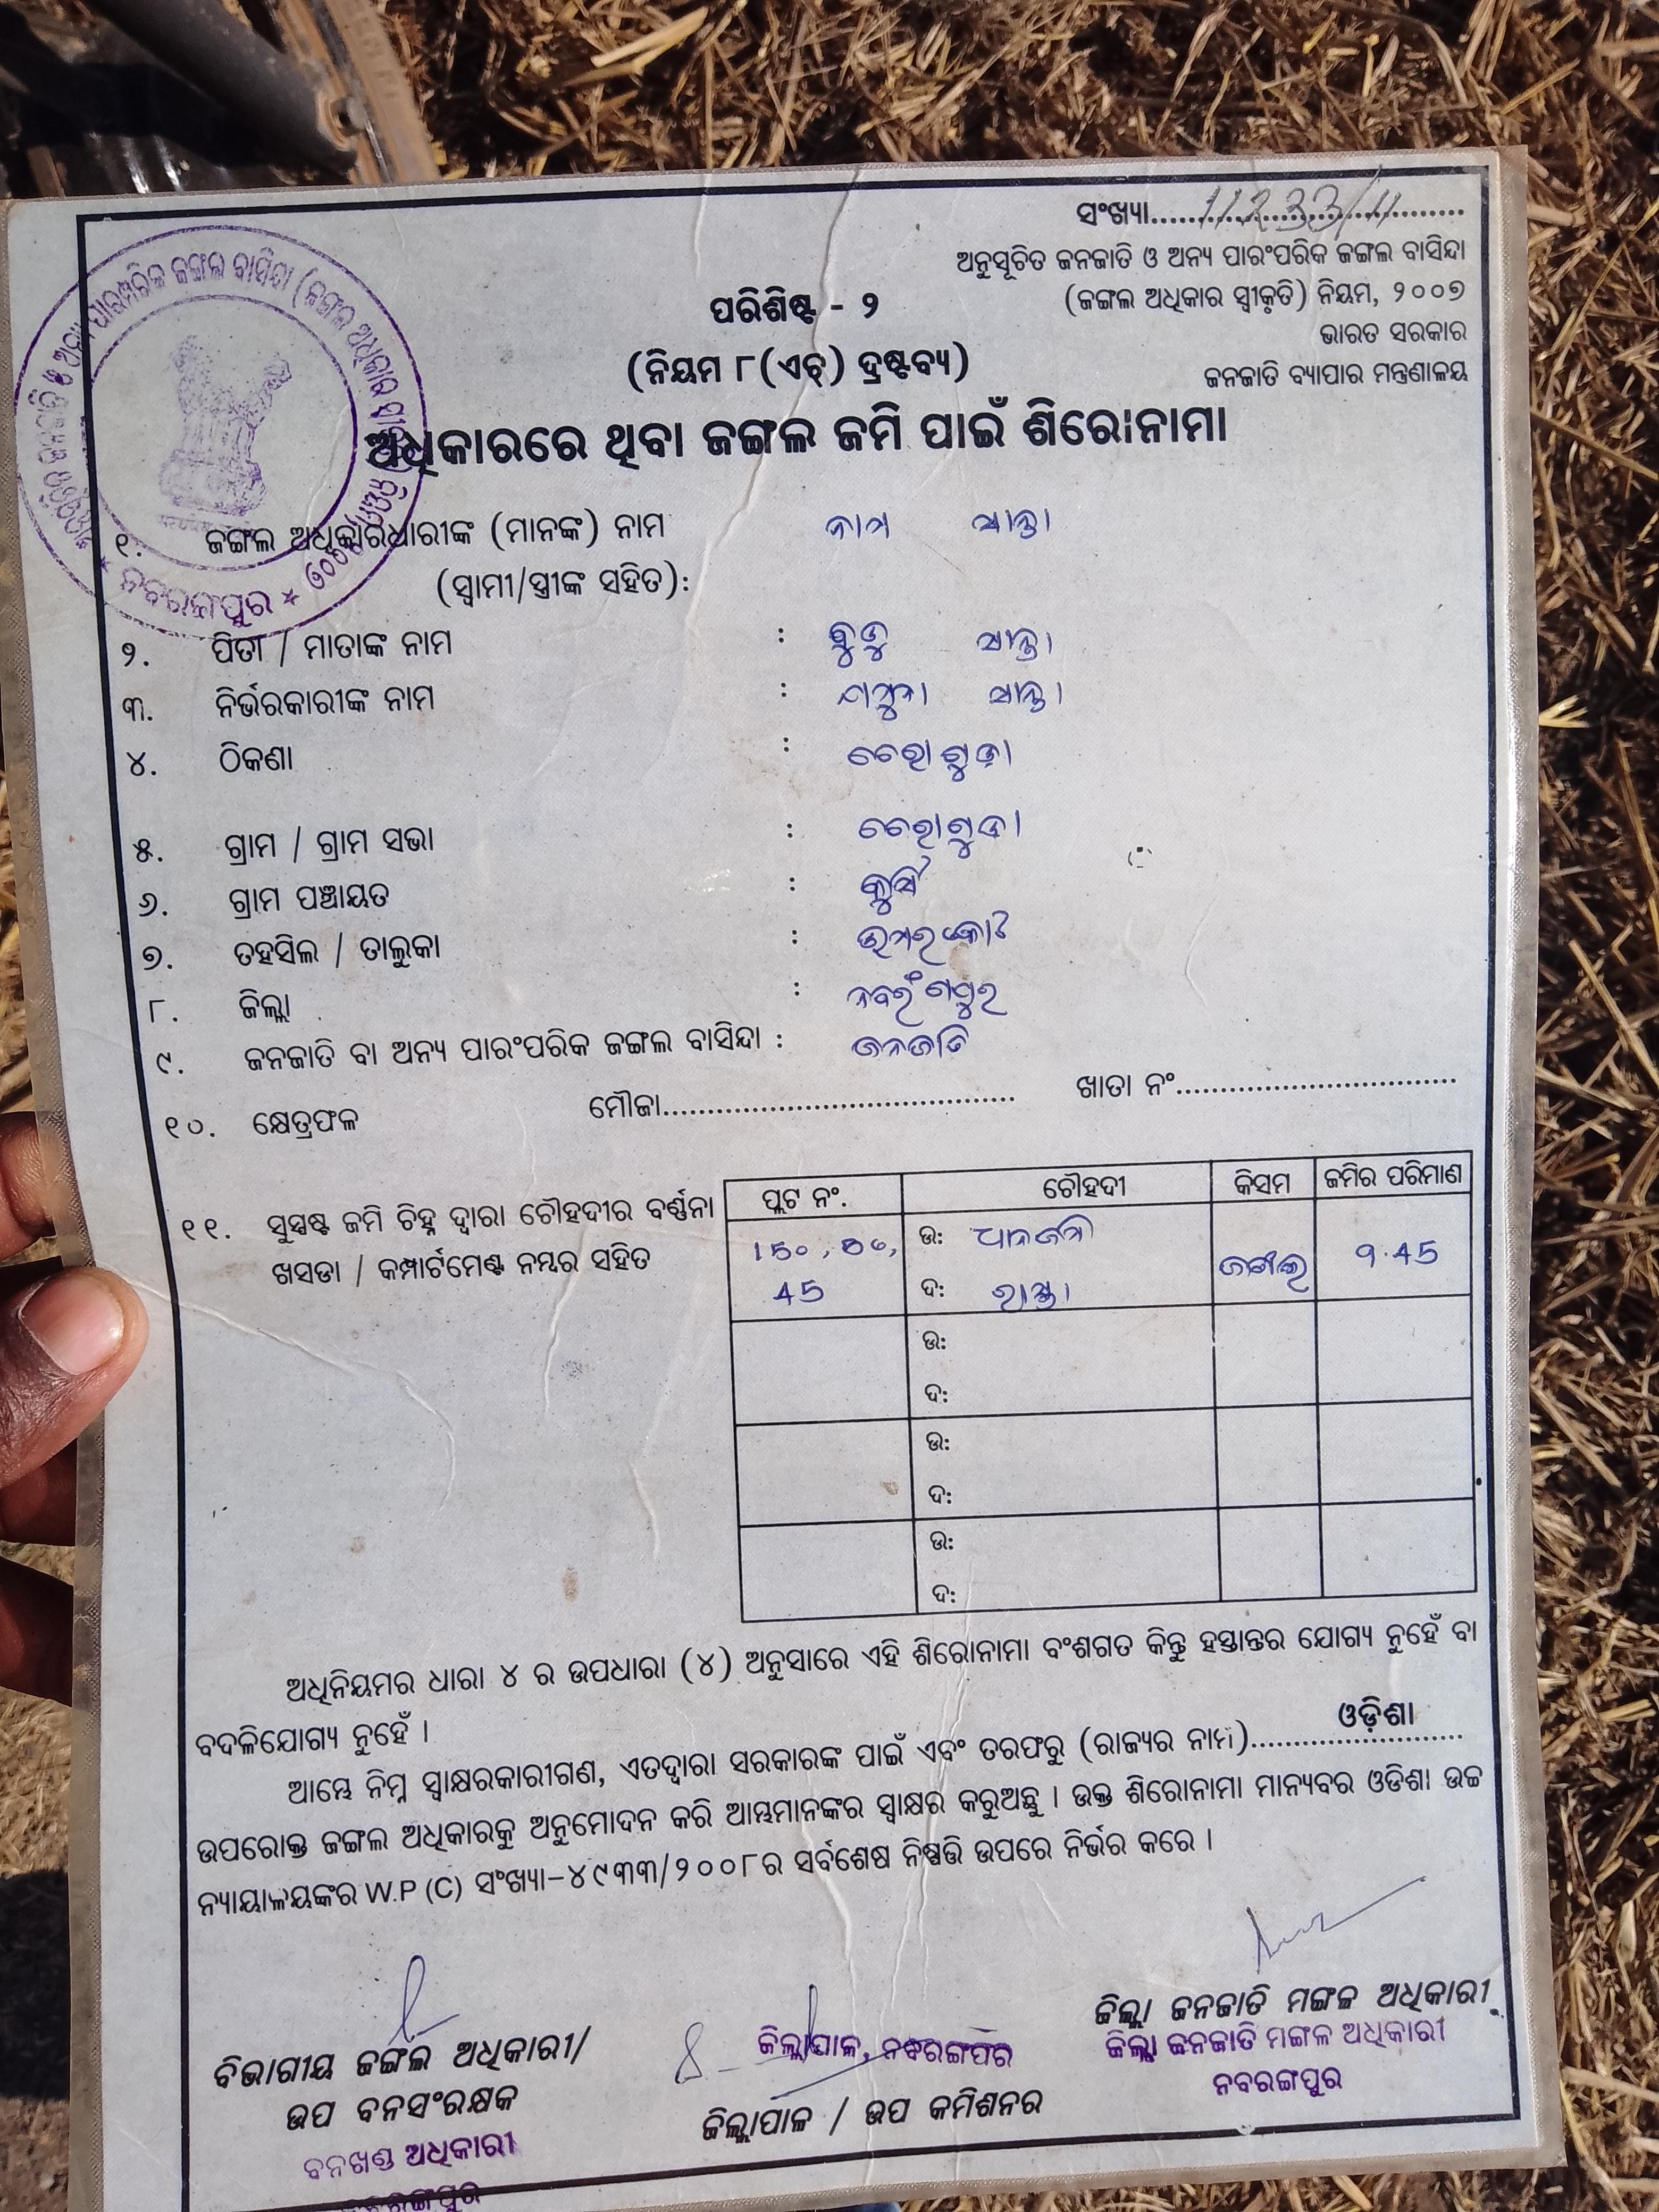 ସଂଖ୍ୟା....11233/11....
ଅନୁସୂଚିତ ଜନଜାତି ଓ ଅନ୍ୟ ପାରଂପରିକ ଜଙ୍ଗଲ ବାସିନ୍ଦା
(ଜଙ୍ଗଲ ଅଧିକାର ସ୍ୱୀକୃତି) ନିୟମ, ୨୦୦୭
ଭାରତ ସରକାର
ଜନଜାତି ବ୍ୟାପାର ମନ୍ତ୍ରଣାଳୟ
ପରିଶିଷ୍ଟ - ୨
(ନିୟମ ୮(ଏଚ୍) ଦ୍ରଷ୍ଟବ୍ୟ)
ଅଧିକାରରେ ଥିବା ଜଙ୍ଗଲ ଜମି ପାଇଁ ଶିରୋନାମା
୧. ଜଙ୍ଗଲ ଅଧିକାରଧାରୀଙ୍କ (ମାନଙ୍କ) ନାମ ସାନ୍ତା
(ସ୍ୱାମୀ/ସ୍ତ୍ରୀଙ୍କ ସହିତ):
୨. ପିତା / ମାତାଙ୍କ ନାମ : ସାନ୍ତା
୩. ନିର୍ଭରକାରୀଙ୍କ ନାମ : ସାନ୍ତା
୪. ଠିକଣା : ଚେରାଗୁଡ଼ା
୫. ଗ୍ରାମ / ଗ୍ରାମ ସଭା : ଚେରାଗୁଡା
୬. ଗ୍ରାମ ପଞ୍ଚାୟତ :
୭. ତହସିଲ / ତାଲୁକା : ଉମରକୋଟ
୮. ଜିଲ୍ଲା : ନବରଂଗପୁର
୯. ଜନଜାତି ବା ଅନ୍ୟ ପାରଂପରିକ ଜଙ୍ଗଲ ବାସିନ୍ଦା : ଜନଜାତି
୧୦. କ୍ଷେତ୍ରଫଳ ମୌଜା........................................ ଖାତା ନଂ................................
୧୧. ସୁସ୍ପଷ୍ଟ ଜମି ଚିହ୍ନ ଦ୍ୱାରା ଚୌହଦୀର ବର୍ଣ୍ଣନା
ଖସଡା / କମ୍ପାର୍ଟମେଣ୍ଟ ନମ୍ବର ସହିତ
ପ୍ଲଟ ନଂ. ଚୌହଦୀ କିସମ ଜମିର ପରିମାଣ
ଉ: ଧାନଜମି
45 ଦ: ରାସ୍ତା ଜଙ୍ଗଲ
ଉ:
ଦ:
ଉ:
ଦ:
ଉ:
ଦ:
ଅଧିନିୟମର ଧାରା ୪ ର ଉପଧାରା (୪) ଅନୁସାରେ ଏହି ଶିରୋନାମା ବଂଶଗତ କିନ୍ତୁ ହସ୍ତାନ୍ତର ଯୋଗ୍ୟ ନୁହେଁ ବା
ବଦଳିଯୋଗ୍ୟ ନୁହେଁ ।
ଆମ୍ଭେ ନିମ୍ନ ସ୍ୱାକ୍ଷରକାରୀଗଣ, ଏତଦ୍ୱାରା ସରକାରଙ୍କ ପାଇଁ ଏବଂ ତରଫରୁ (ରାଜ୍ୟର ନାମ)........ଓଡ଼ିଶା........
ଉପରୋକ୍ତ ଜଙ୍ଗଲ ଅଧିକାରକୁ ଅନୁମୋଦନ କରି ଆମ୍ଭମାନଙ୍କର ସ୍ୱାକ୍ଷର କରୁଅଛୁ । ଉକ୍ତ ଶିରୋନାମା ମାନ୍ୟବର ଓଡିଶା ଉଚ୍ଚ
ନ୍ୟାୟାଳୟଙ୍କର W.P (C) ସଂଖ୍ୟା-୪୯୩୩/୨୦୦୮ର ସର୍ବଶେଷ ନିଷ୍ପତ୍ତି ଉପରେ ନିର୍ଭର କରେ ।
ବିଭାଗୀୟ ଜଙ୍ଗଲ ଅଧିକାରୀ/
ଉପ ବନସଂରକ୍ଷକ
ବନଖଣ୍ଡ ଅଧିକାରୀ
ଜିଲ୍ଲାପାଳ, ନବରଙ୍ଗପୁର
ଜିଲ୍ଲାପାଳ / ଉପ କମିଶନର
ଜିଲ୍ଲା ଜନଜାତି ମଙ୍ଗଳ ଅଧିକାରୀ
ଜିଲ୍ଲା ଜନଜାତି ମଙ୍ଗଳ ଅଧିକାରୀ
ନବରଙ୍ଗପୁର